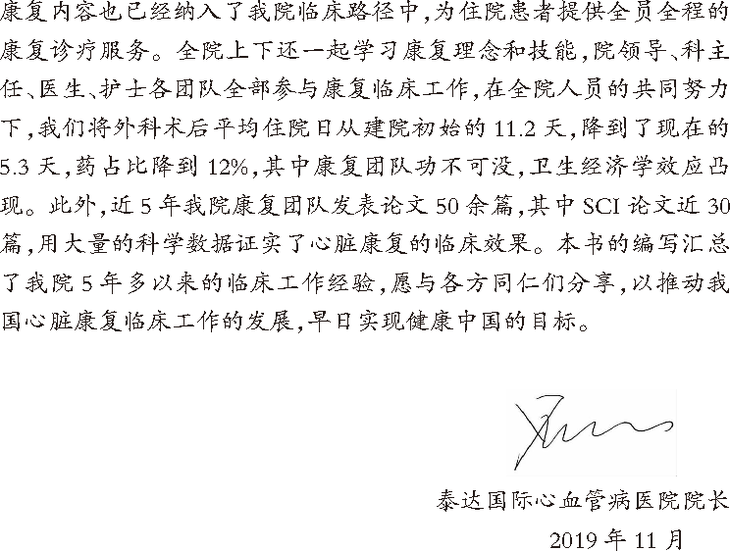 康复内容也已经纳入了我院临床路径中,为住院患者提供全员全程的
康复诊疗服务。全院上下还一起学习康复理念和技能,院领导、科主
任、医生、护士各团队全部参与康复临床工作,在全院人员的共同努力
下,我们将外科术后平均住院日从建院初始的 11.2 天,降到了现在的
5.3 天,药占比降到 12%,其中康复团队功不可没,卫生经济学效应凸
现。此外,近 5 年我院康复团队发表论文 50 余篇,其中 SCI 论文近 30
篇,用大量的科学数据证实了心脏康复的临床效果。本书的编写汇总
了我院 5 年多以来的临床工作经验,愿与各方同仁们分享,以推动我
国心脏康复临床工作的发展,早日实现健康中国的目标。
泰达国际心血管病医院院长
2019 年 11 月